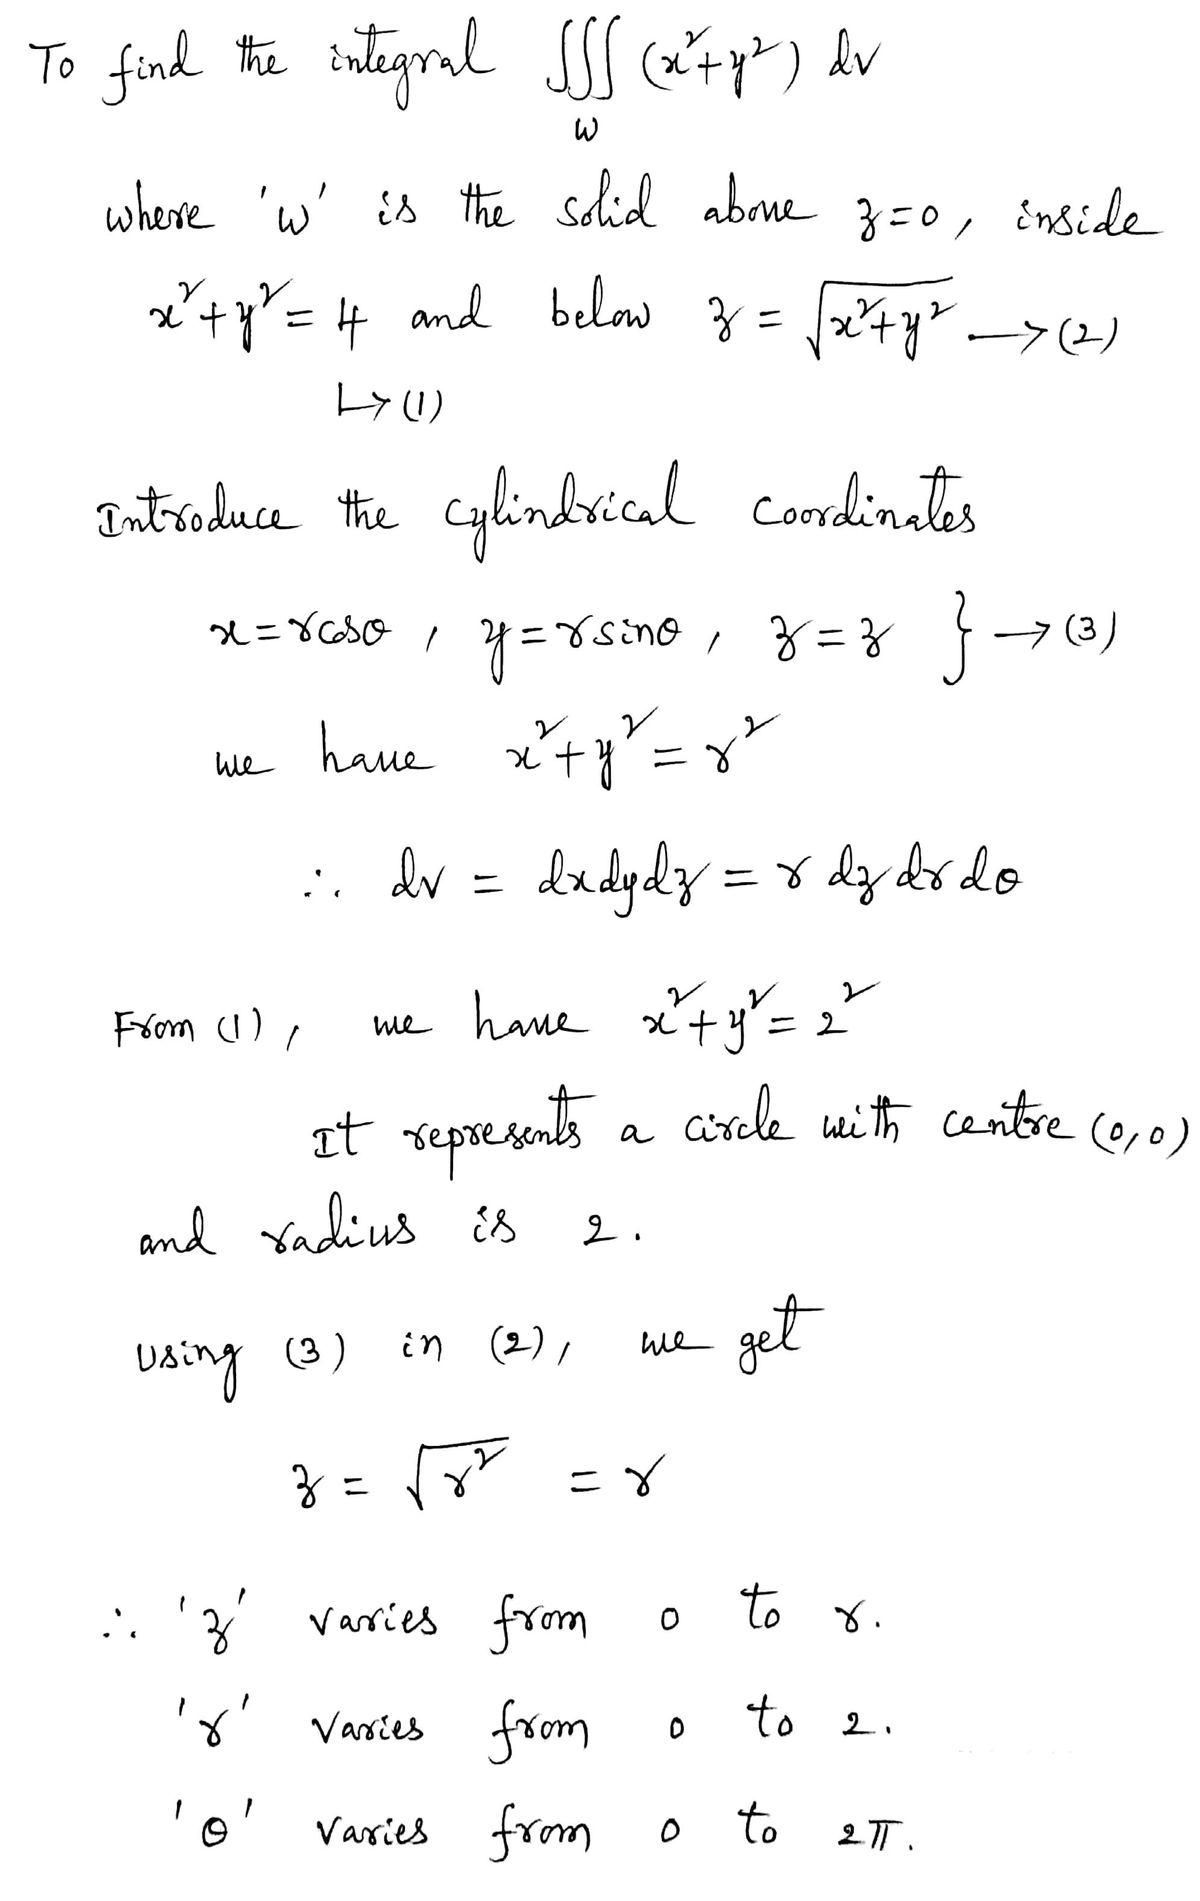 To find the integral ∭ (x²+y²) dv
w
where 'w' is the solid above z=0, inside
x²+y²=4 and below z = √(x²+y²) → (2)
↳ (1)
Introduce the cylindrical coordinates
x=rcosθ, y=rsinθ, z=z } → (3)
we have x²+y²=r²
∴ dv = dxdydz = r dz dr dθ
From (1), we have x²+y²=2²
It represents a circle with centre (0,0)
and radius is 2.
Using (3) in (2), we get
z = √r² = r
∴ 'z' varies from 0 to r.
'r' varies from 0 to 2.
'θ' varies from 0 to 2π.